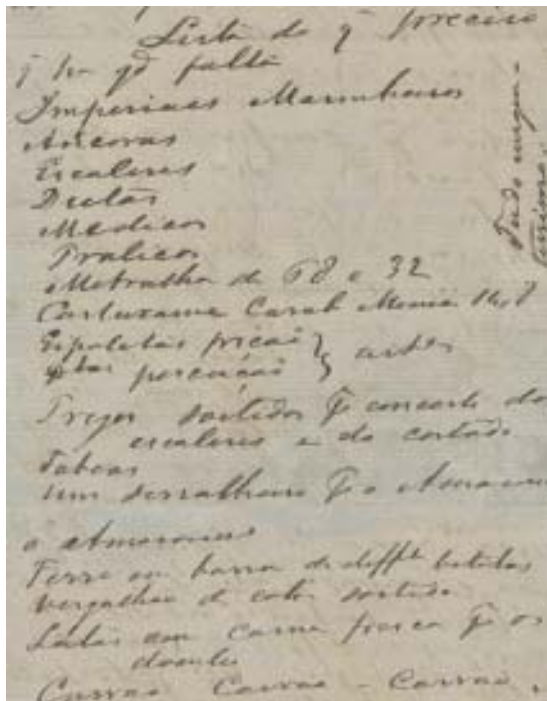 Lista do q̃ preciso
q̃ ha gde falta
Imperiaes Marinheiros
Ancoras
Escaleres
Dietas
Medicos
Praticos
Metralha de 68 e 32
Cartuxame Carab Minié 14,8
Espoletas fricçaõ
percuçaõ
Pregos sortidos pa concerto do
escaleres e do costado
Taboas
um serralheiro pa o
o Amazonas
Ferro em barra de diffes bitolas
Vergalhaõ de cobre sortido
Latas com carne fresca pa os
doentes
Carvaõ Carvaõ - Carvaõ
Tudo urgen-
tissimo